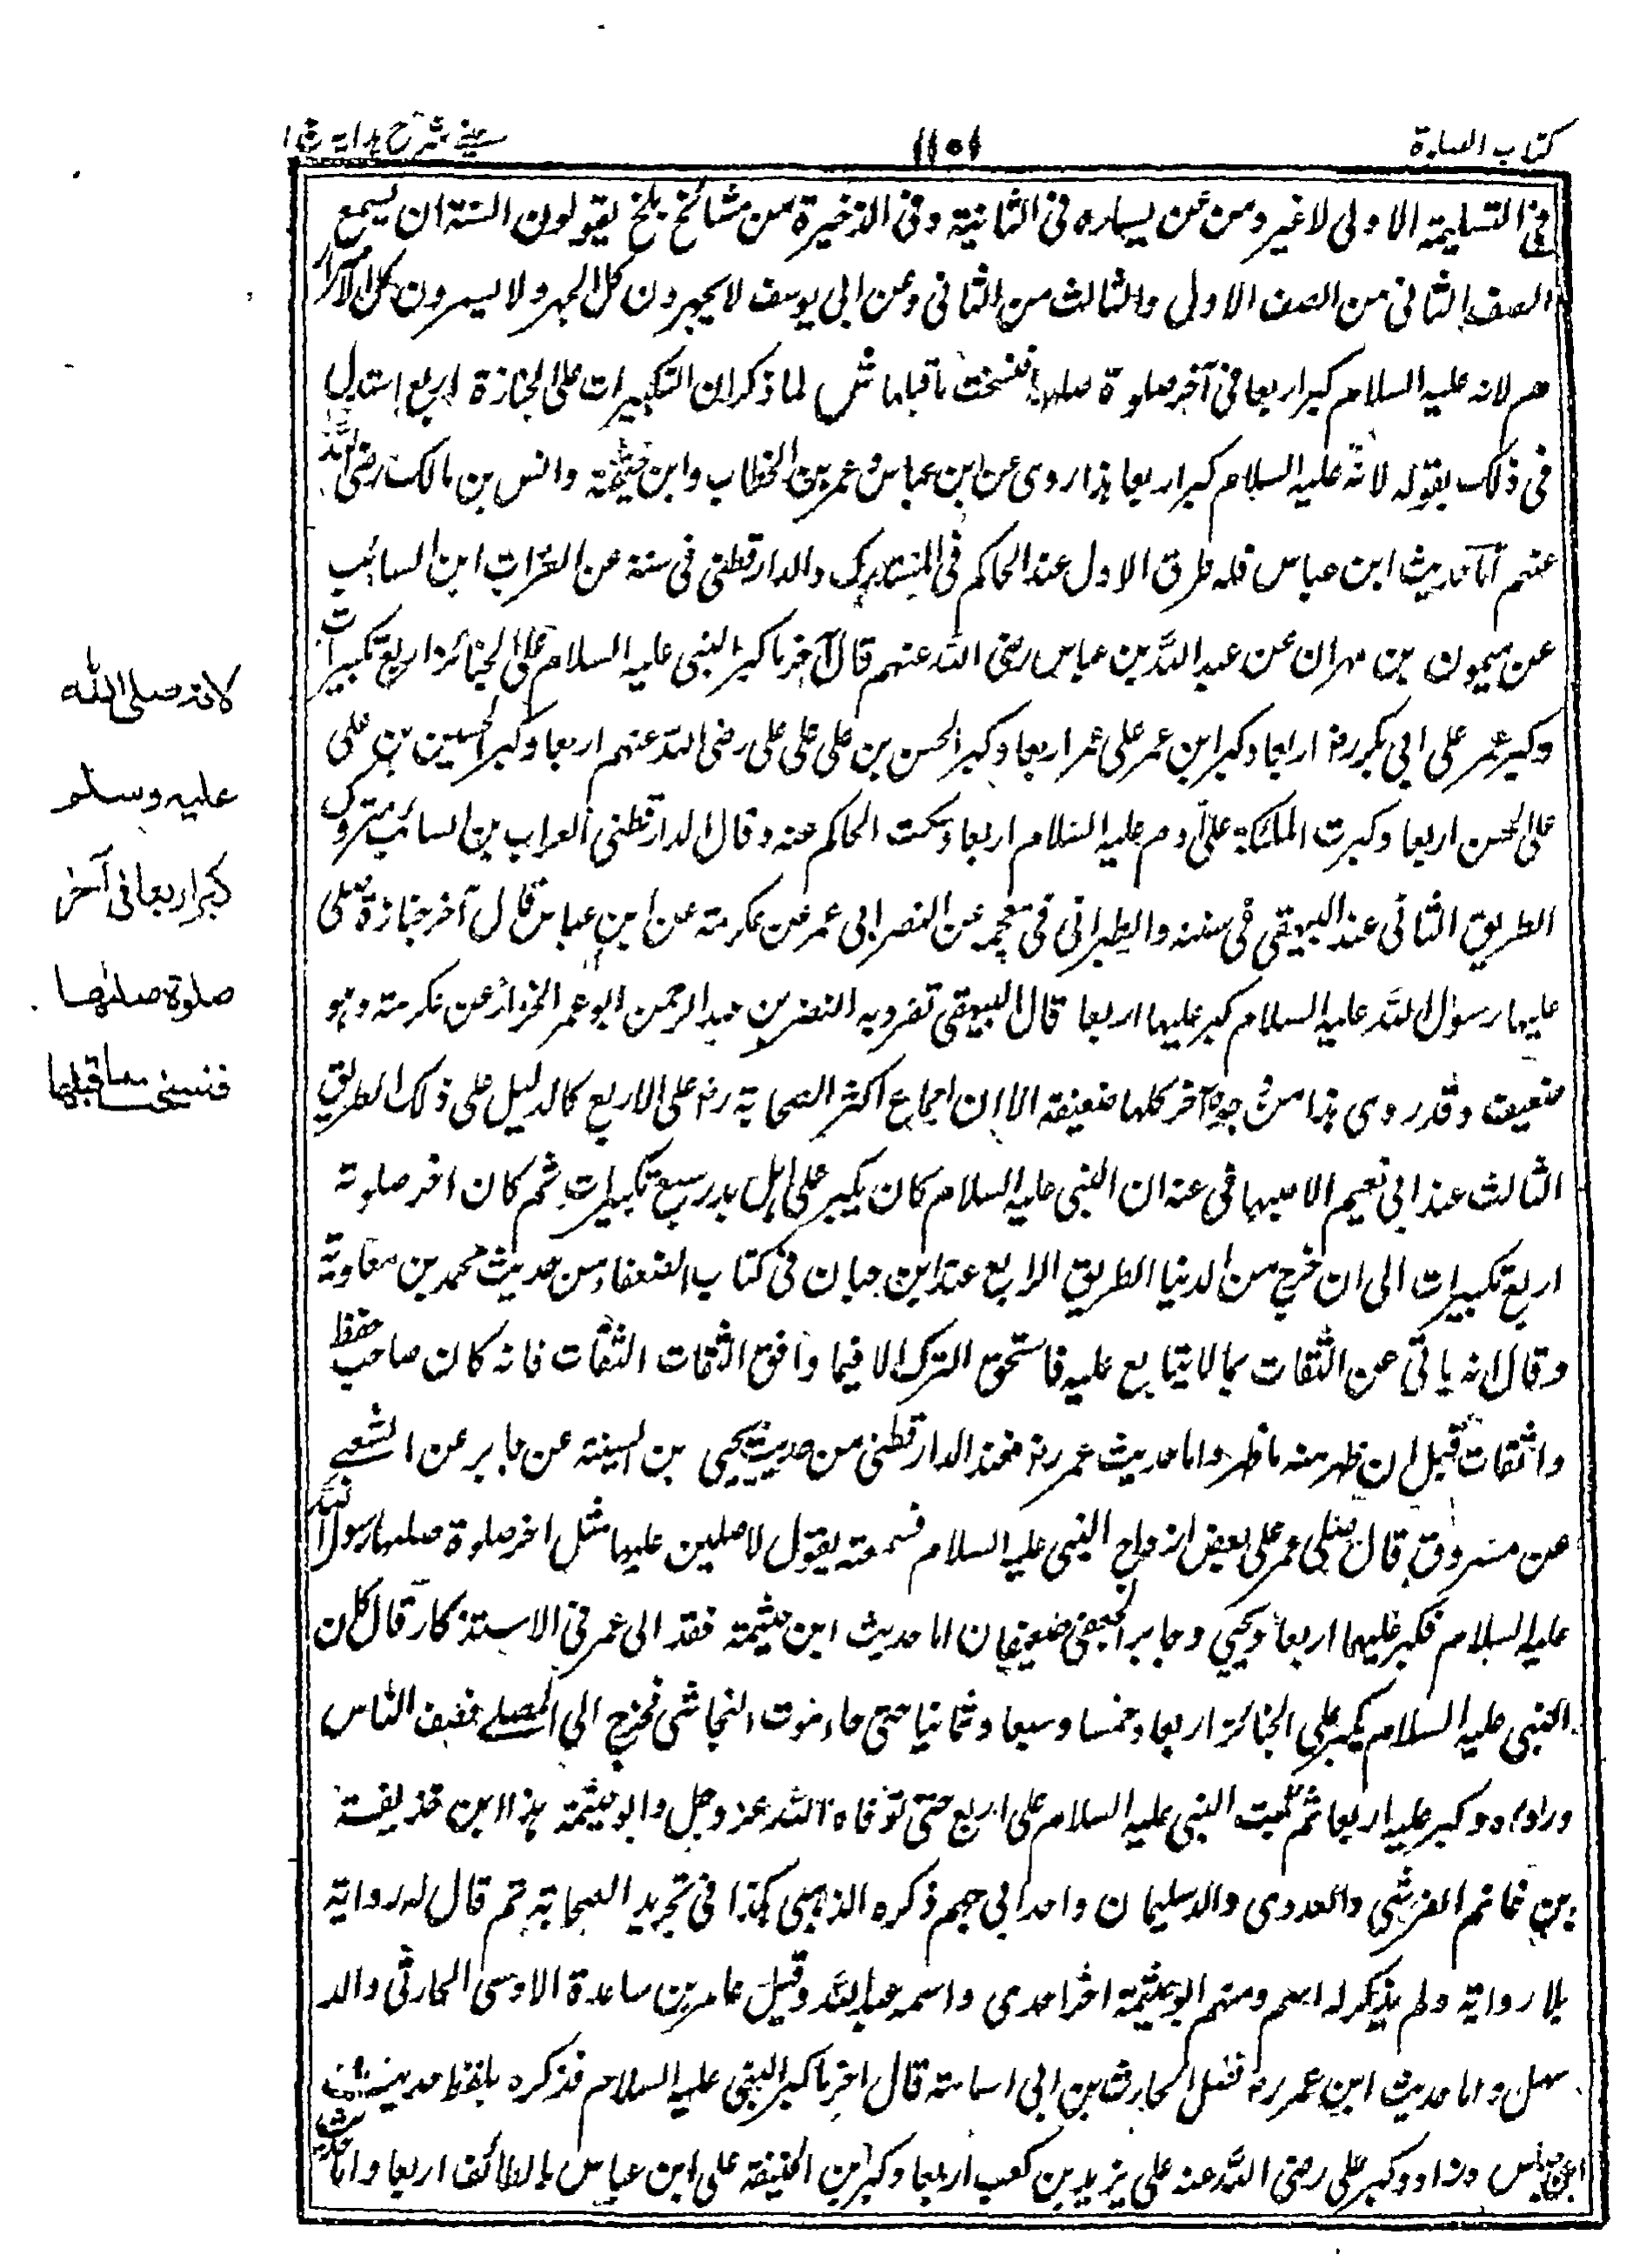 كتاب الصلوة
١١٥١
عيني شرح هداية ج ١
في التسليمة الاولى لاغير ومن عن يساره فى الثانية وفى الذخيرة من مشائخ بلخ يقولون السنة ان يسمع
الصف الثانى من الصف الاول والثالث من الثانى وعن ابى يوسف لا يجهرون كل الجهر ولا يسرون كل الاسرار
هم لانه عليه السلام كبر اربعا فى آخر صلوة صلها فنسخت ما قبلها ش لما ذكر ان التكبيرات على الجنازة اربع استدل
فى ذلك بقوله لانه عليه السلام كبر اربعا هذا روى عن ابن عباس وعمر بن الخطاب وابن خيثمة وانس بن مالك رضى الله
عنهم اما حديث ابن عباس فله طرق الاول عند الحاكم فى المستدرك والدارقطنى فى سننه عن الفرات ابن السائب
عن ميمون بن مهران عن عبد الله بن عباس رضى الله عنهم قال آخر ما كبر النبى عليه السلام على الجنائز اربع تكبيرات
وكبر عمر على ابى بكر رضـ اربعا وكبر ابن عمر على عمر اربعا وكبر الحسن بن على على على رضى الله عنهم اربعا وكبر الحسين بن على
على الحسن اربعا وكبرت الملئكة على آدم عليه السلام اربعا وسكت الحاكم عنه وقال الدارقطنى الفرات بن السائب متروك
الطريق الثانى عند البيهقى فى سننه والطبرانى فى معجمه عن النضر ابى عمر عن عكرمة عن ابن عباس قال آخر جنازة صلى
عليها رسول الله عليه السلام كبر عليها اربعا قال البيهقى تفرد به النضر بن عبد الرحمن ابو عمر الخزاز عن عكرمة وهو
ضعيف وقد روى هذا من وجوه آخر كلها ضعيفة الا ان اجماع اكثر الصحابة رضـ على الاربع كالدليل على ذلك الطريق
الثالث عند ابى نعيم الاصبهانى عنه ان النبى عليه السلام كان يكبر على اهل بدر سبع تكبيرات ثم كان اخر صلوته
اربع تكبيرات الى ان خرج من الدنيا الطريق الرابع عند ابن حبان فى كتاب الضعفاء من حديث محمد بن معاوية
وقال انه ياتى عن الثقات بما لا يتابع عليه فاستحق الترك الا فيما وافق الثقات الثقات فانه كان صاحب حفظ
واثقات قبل ان ظهر منه ما ظهر واما حديث عمر رضـ فعند الدارقطنى من حديث يحيى بن انيسة عن جابر عن الشعبى
عن مسروق قال صلى عمر على بعض ازواج النبى عليه السلام فسمعته يقول لاصلين عليها مثل اخر صلوة صلها رسول الله
عليه السلام فكبر عليها اربعا ويحيى وجابر الجعفى ضعيفان اما حديث ابن خيثمة فقد الى عمر فى الاستذكار قال كان
النبى عليه السلام يكبر على الجنائز اربعا وخمسا وسبعا وثمانيا حتى جاء موت النجاشى فخرج الى المصلى فصف الناس
وراءه وكبر عليه اربعا ثم ثبت النبى عليه السلام على اربع حتى توفاه الله عز وجل وابو خيثمة هذا ابن حذيفة
بن غانم القرشى والعدوى والد سليمان واحد ابى جهم ذكره الذهبى هكذا فى تجريد الصحابة ثم قال له رواية
بلا رواية ولم يذكر له اسم ومنهم ابو خيثمة اخر احدى واسمه عبد الله وقيل عامر بن ساعدة الاوسى الحارثى والد
سهل واما حديث ابن عمر رضـ فنقل الحارث بن ابى اسامة قال اخر ما كبر النبى عليه السلام فذكره بلفظ حديث
ابن عباس وزاد وكبر على رضى الله عنه على يزيد بن كعب اربعا وكبر ابن الحنيفة على ابن عباس بالطائف اربعا واما حديث
لانه صلى الله
عليه وسلم
كبر اربعا فى آخر
صلوة صلاها
فنسخت ما قبلها